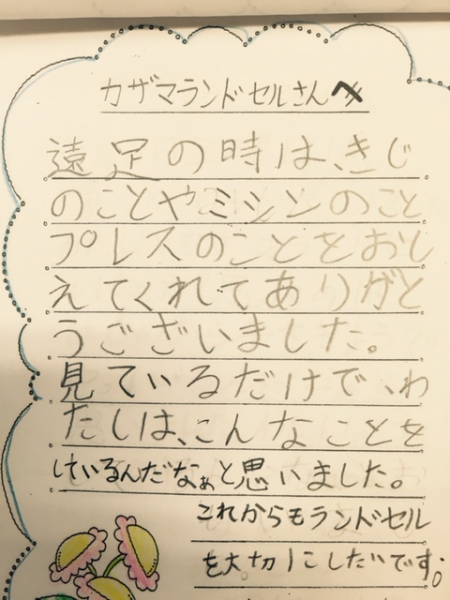 カザマランドセルさんへ
遠足の時は、きじ
のことやミシンのこと
プレスのことをおし
えてくれてありがと
うございました。
見ているだけで、わ
たしは、こんなことを
しているんだなぁと思いました。
これからもランドセル
を大切にしたいです。